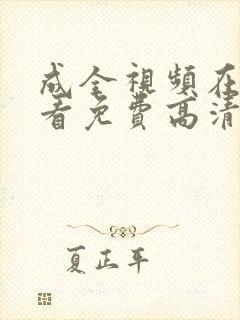 成全視頻在
看免費高清
夏正平